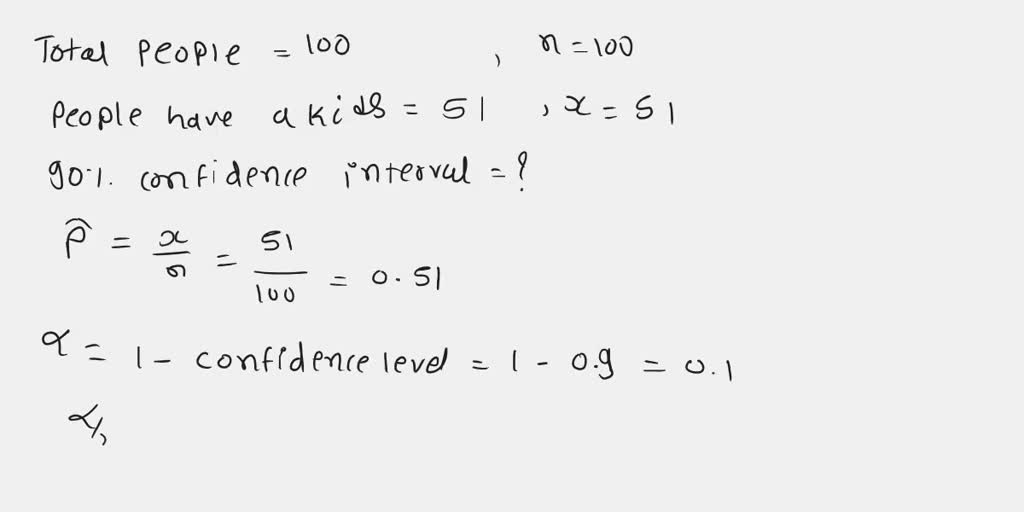 Total people = 100 , n = 100
People have a kids = 51 , x = 51
90%. confidence interval = ?
p̂ = x/n = 51/100 = 0.51
α = 1 - confidence level = 1 - 0.9 = 0.1
α/